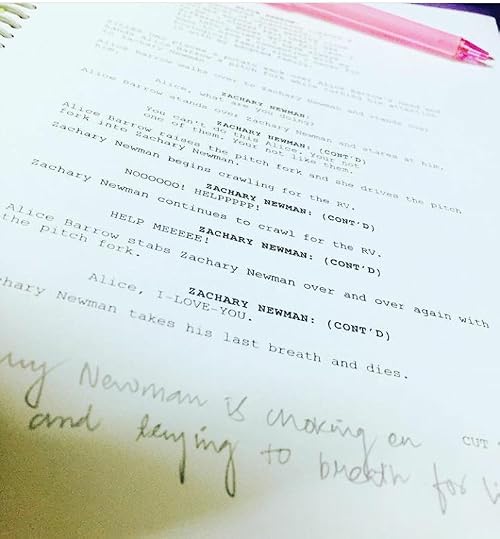 ZACHARY NEWMAN:
Alice, what are you doing?
Alice Barrow stands over Zachary Newman and stares at him.
ZACHARY NEWMAN: (CONT'D)
You can't do this Alice. Your not
one of them. Your not like them.
Alice Barrow raises the pitch fork and she drives the pitch
fork into Zachary Newman.
Zachary Newman begins crawling for the RV.
ZACHARY NEWMAN: (CONT'D)
NOOOOOO! HELPPPPP!
Zachary Newman continues to crawl for the RV.
ZACHARY NEWMAN: (CONT'D)
HELP MEEEEE!
Alice Barrow stabs Zachary Newman over and over again with
the pitch fork.
ZACHARY NEWMAN: (CONT'D)
Alice, I-LOVE-YOU.
chary Newman takes his last breath and dies.
CUT
Newman is choking on
and trying to breath for